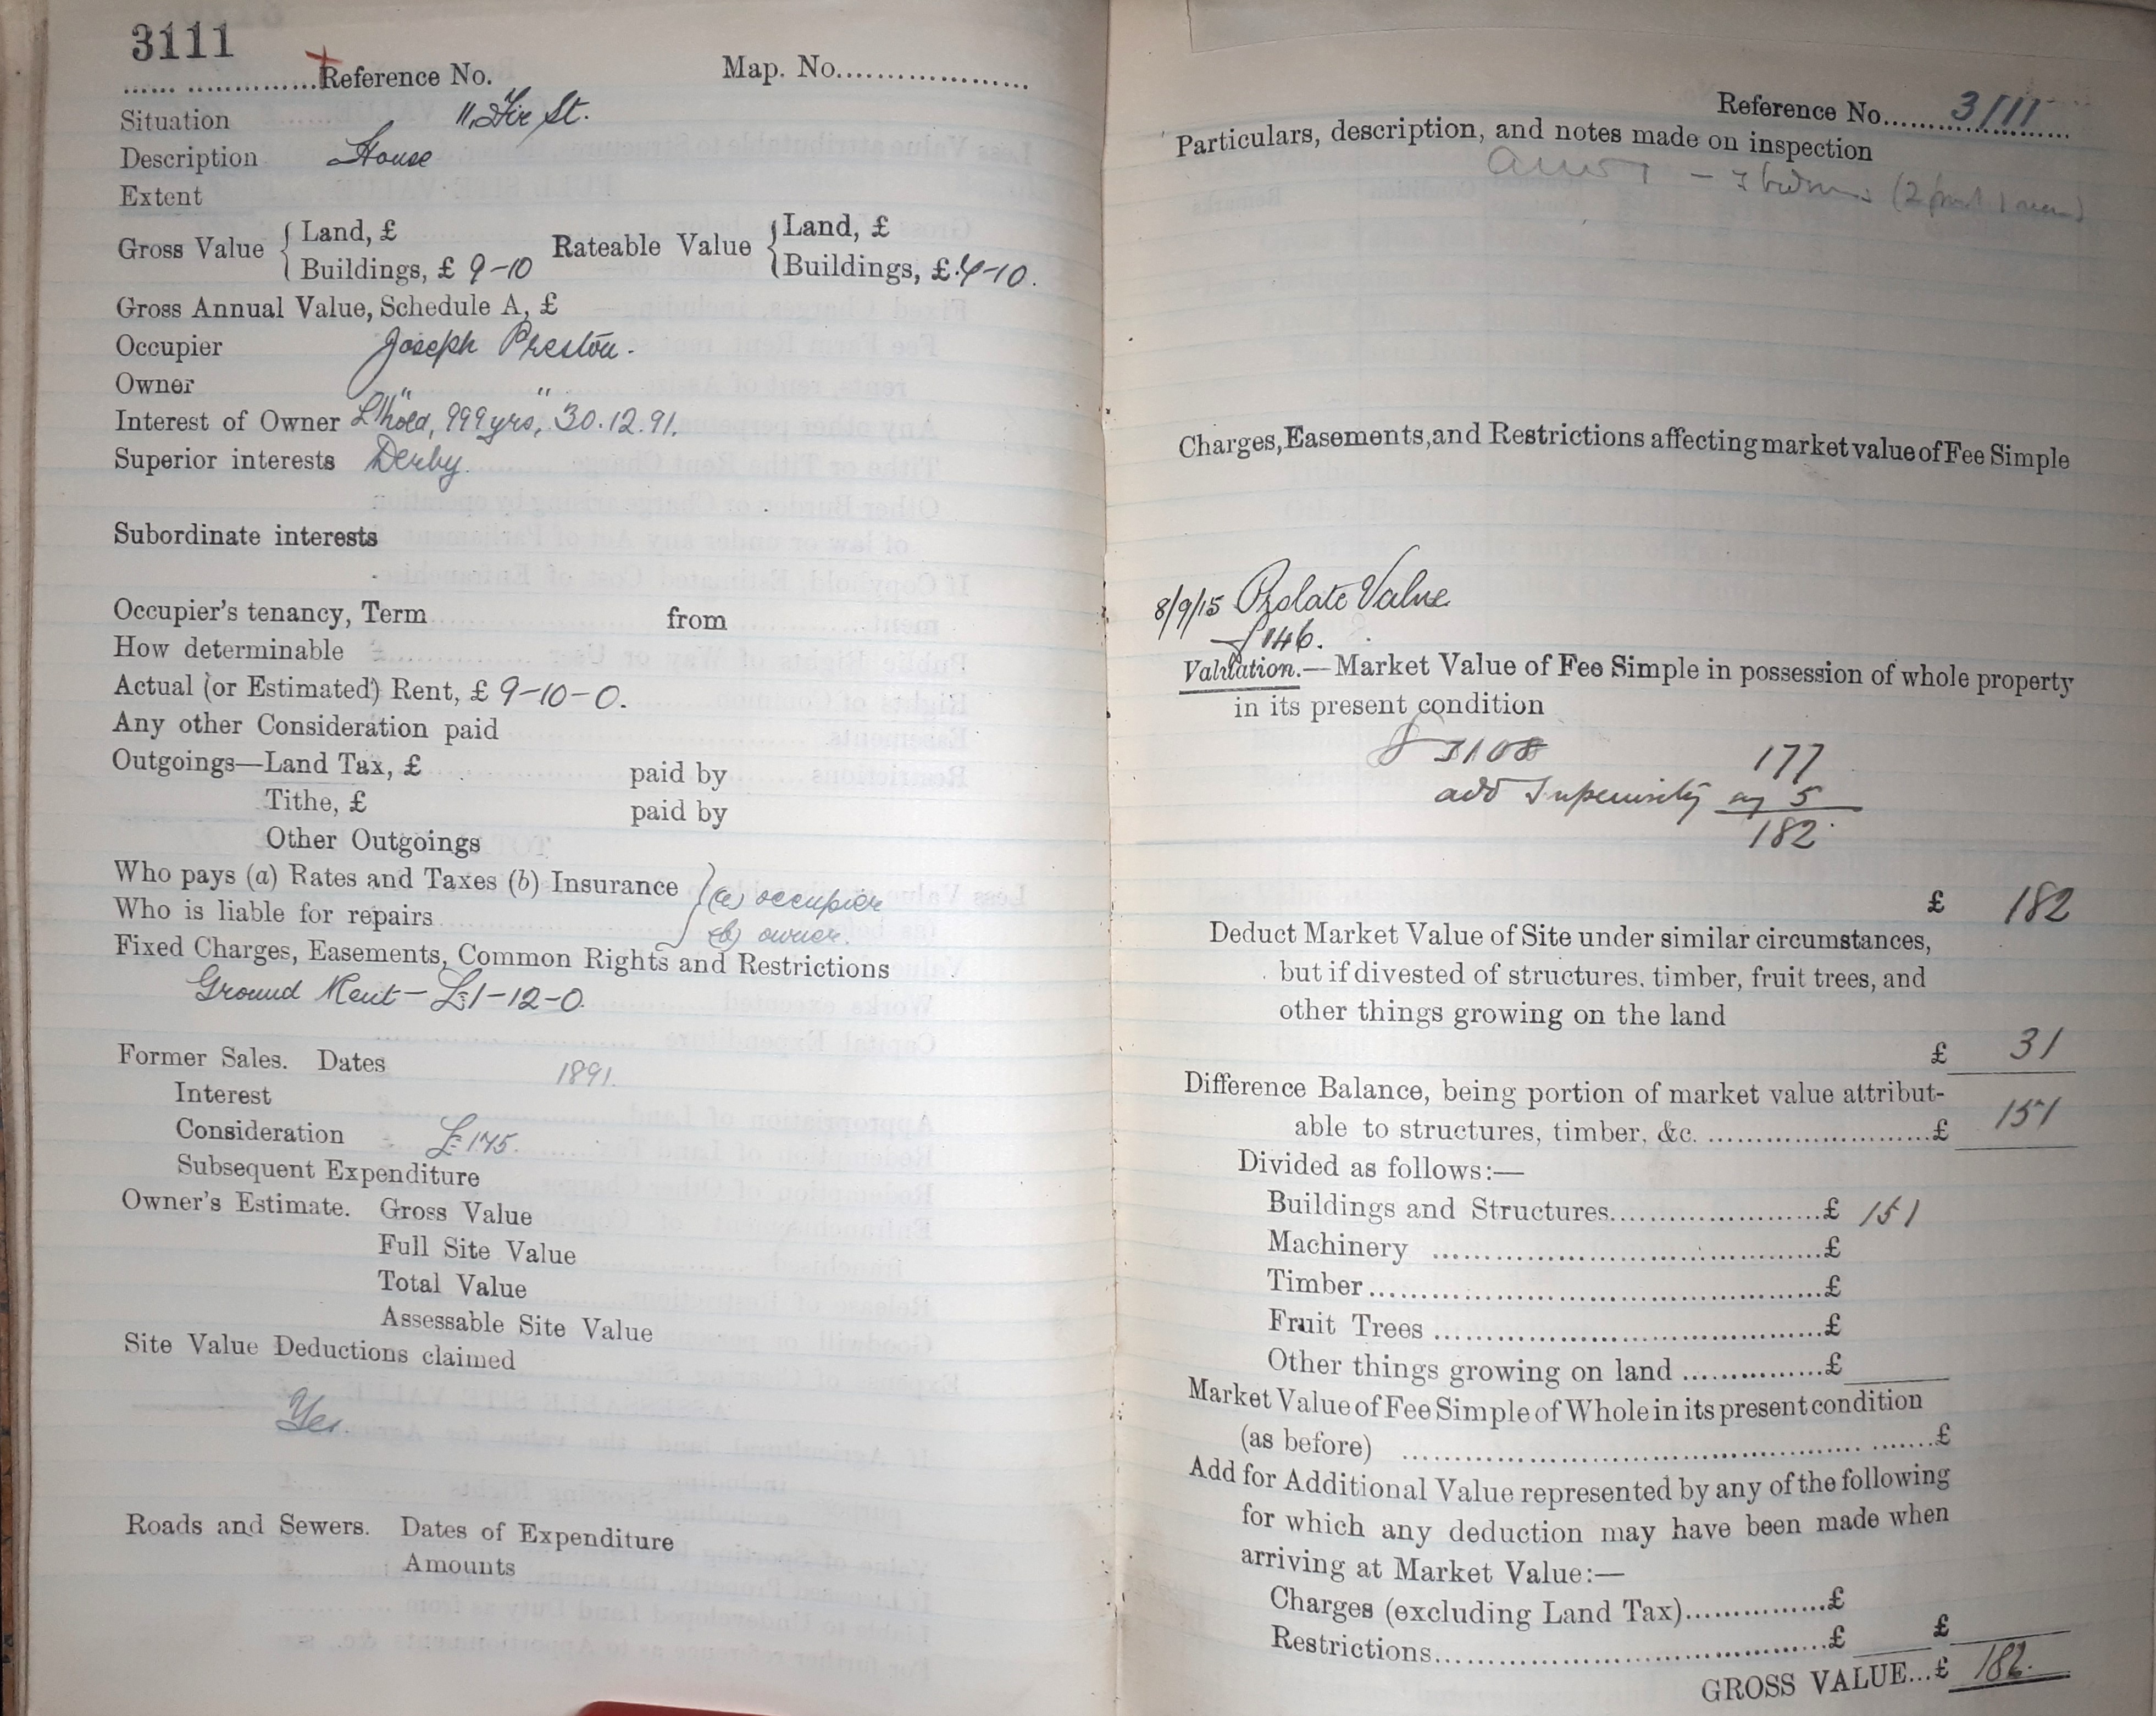 3111
Reference No. Map. No.
Situation 11, Fir St.
Description House
Extent
Gross Value { Land, £ Rateable Value { Land, £
Buildings, £ 9-10 Buildings, £ -10.
Gross Annual Value, Schedule A, £
Occupier Joseph Preston.
Owner " "
Interest of Owner L'hold, 999 yrs, 30.12.91.
Superior interests Derby.
Subordinate interests
Occupier's tenancy, Term from
How determinable
Actual (or Estimated) Rent, £ 9-10-0.
Any other Consideration paid
Outgoings—Land Tax, £ paid by
Tithe, £ paid by
Other Outgoings
Who pays (a) Rates and Taxes (b) Insurance } (a) occupier
Who is liable for repairs (b) owner.
Fixed Charges, Easements, Common Rights and Restrictions
Ground Rent - £1-12-0.
Former Sales. Dates 1891.
Interest
Consideration £175.
Subsequent Expenditure
Owner's Estimate. Gross Value
Full Site Value
Total Value
Assessable Site Value
Site Value Deductions claimed
Yes.
Roads and Sewers. Dates of Expenditure
Amounts
Reference No. 3111
Particulars, description, and notes made on inspection
(2 front 1 rear)
Charges, Easements, and Restrictions affecting market value of Fee Simple
8/9/15 Probate Value
£146.
Valuation.—Market Value of Fee Simple in possession of whole property
in its present condition
3108 177
add Superiority say 5
182
£ 182
Deduct Market Value of Site under similar circumstances,
but if divested of structures, timber, fruit trees, and
other things growing on the land
£ 31
Difference Balance, being portion of market value attribut-
able to structures, timber, &c. £ 151
Divided as follows:—
Buildings and Structures £ 151
Machinery £
Timber £
Fruit Trees £
Other things growing on land £
Market Value of Fee Simple of Whole in its present condition
(as before) £
Add for Additional Value represented by any of the following
for which any deduction may have been made when
arriving at Market Value:—
Charges (excluding Land Tax) £
Restrictions £ £
GROSS VALUE...£ 182.